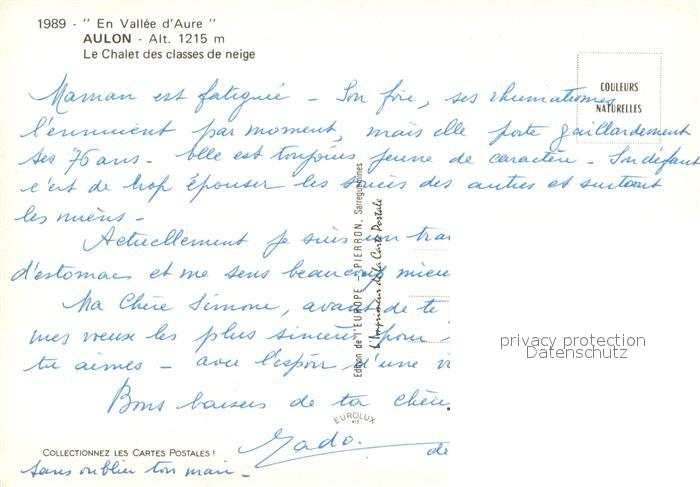 1989 - " En Vallée d'Aure "
AULON - Alt. 1215 m
Le Chalet des classes de neige
COULEURS
NATURELLES
Maman est fatiguée - Son foie, ses rhumatismes
l'ennuient par moment, mais elle porte gaillardement
ses 76 ans - Elle est toujours jeune de caractère - Son défaut
c'est de trop épouser les soucis des autres et surtout
les miens -
Actuellement je suis un
d'estomac et me sens beaucoup
Ma Chère Simone, avant de te
mes voeux les plus sincères pour
tu aimes - avec l'espoir d'une
Bons baisers de ta
Zado.
de
sans oublier ton mari -
Edition de l'EUROPE - PIERRON, Sarreguemines
L'Imprimeur de la Carte Postale
EUROLUX
COLLECTIONNEZ LES CARTES POSTALES !
privacy protection
Datenschutz